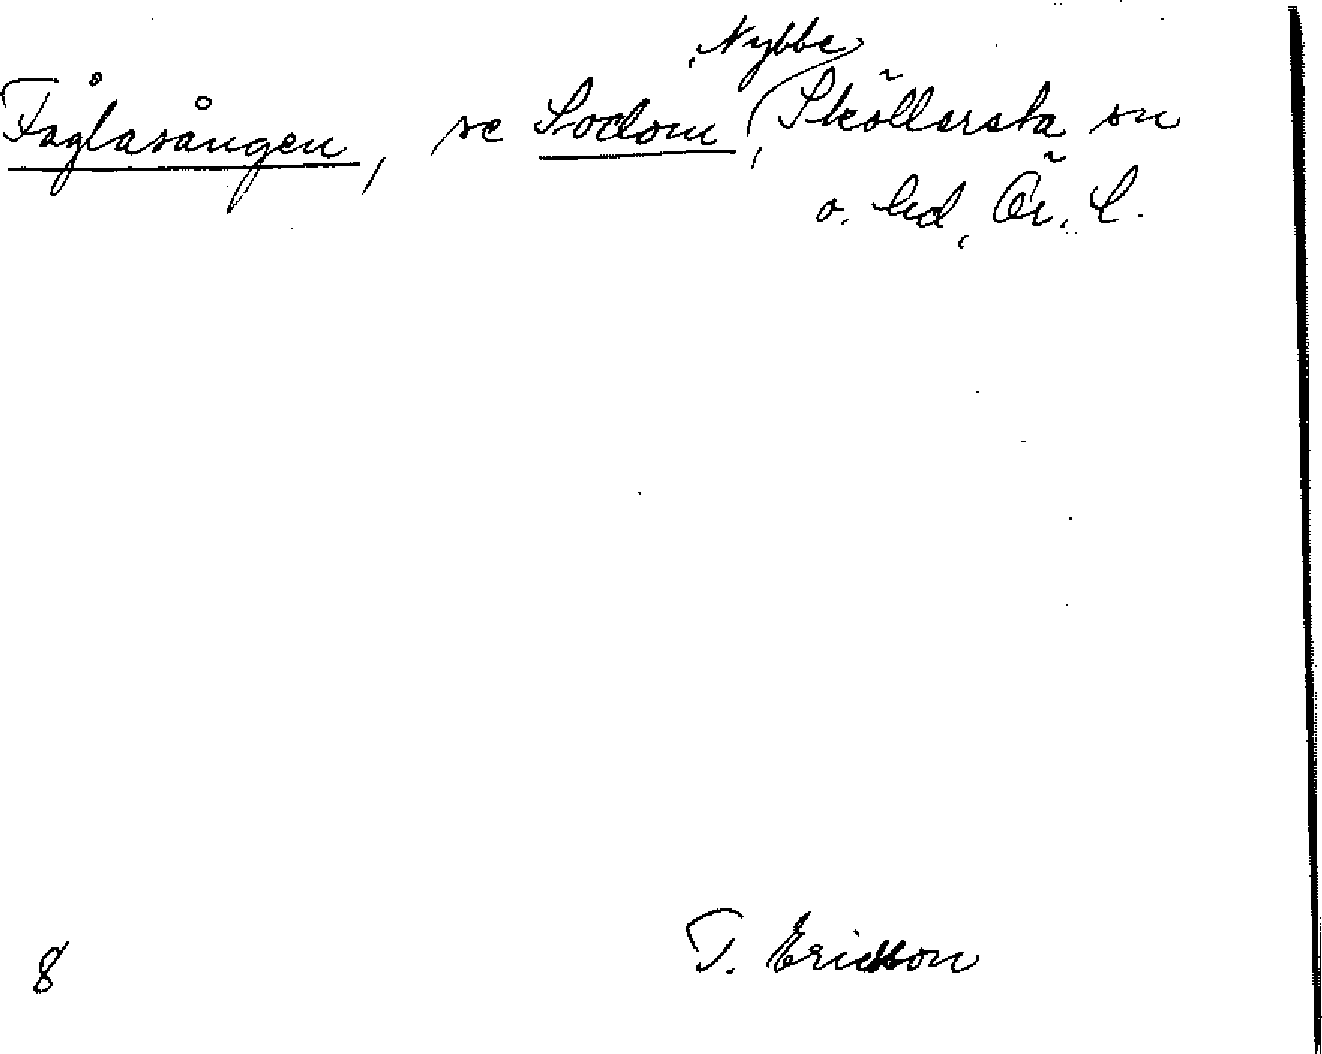 Nybbe
Fåglasången, se Sodom, Sköllersta sn
o. hd, Ör. L.
T. Ericsson
8